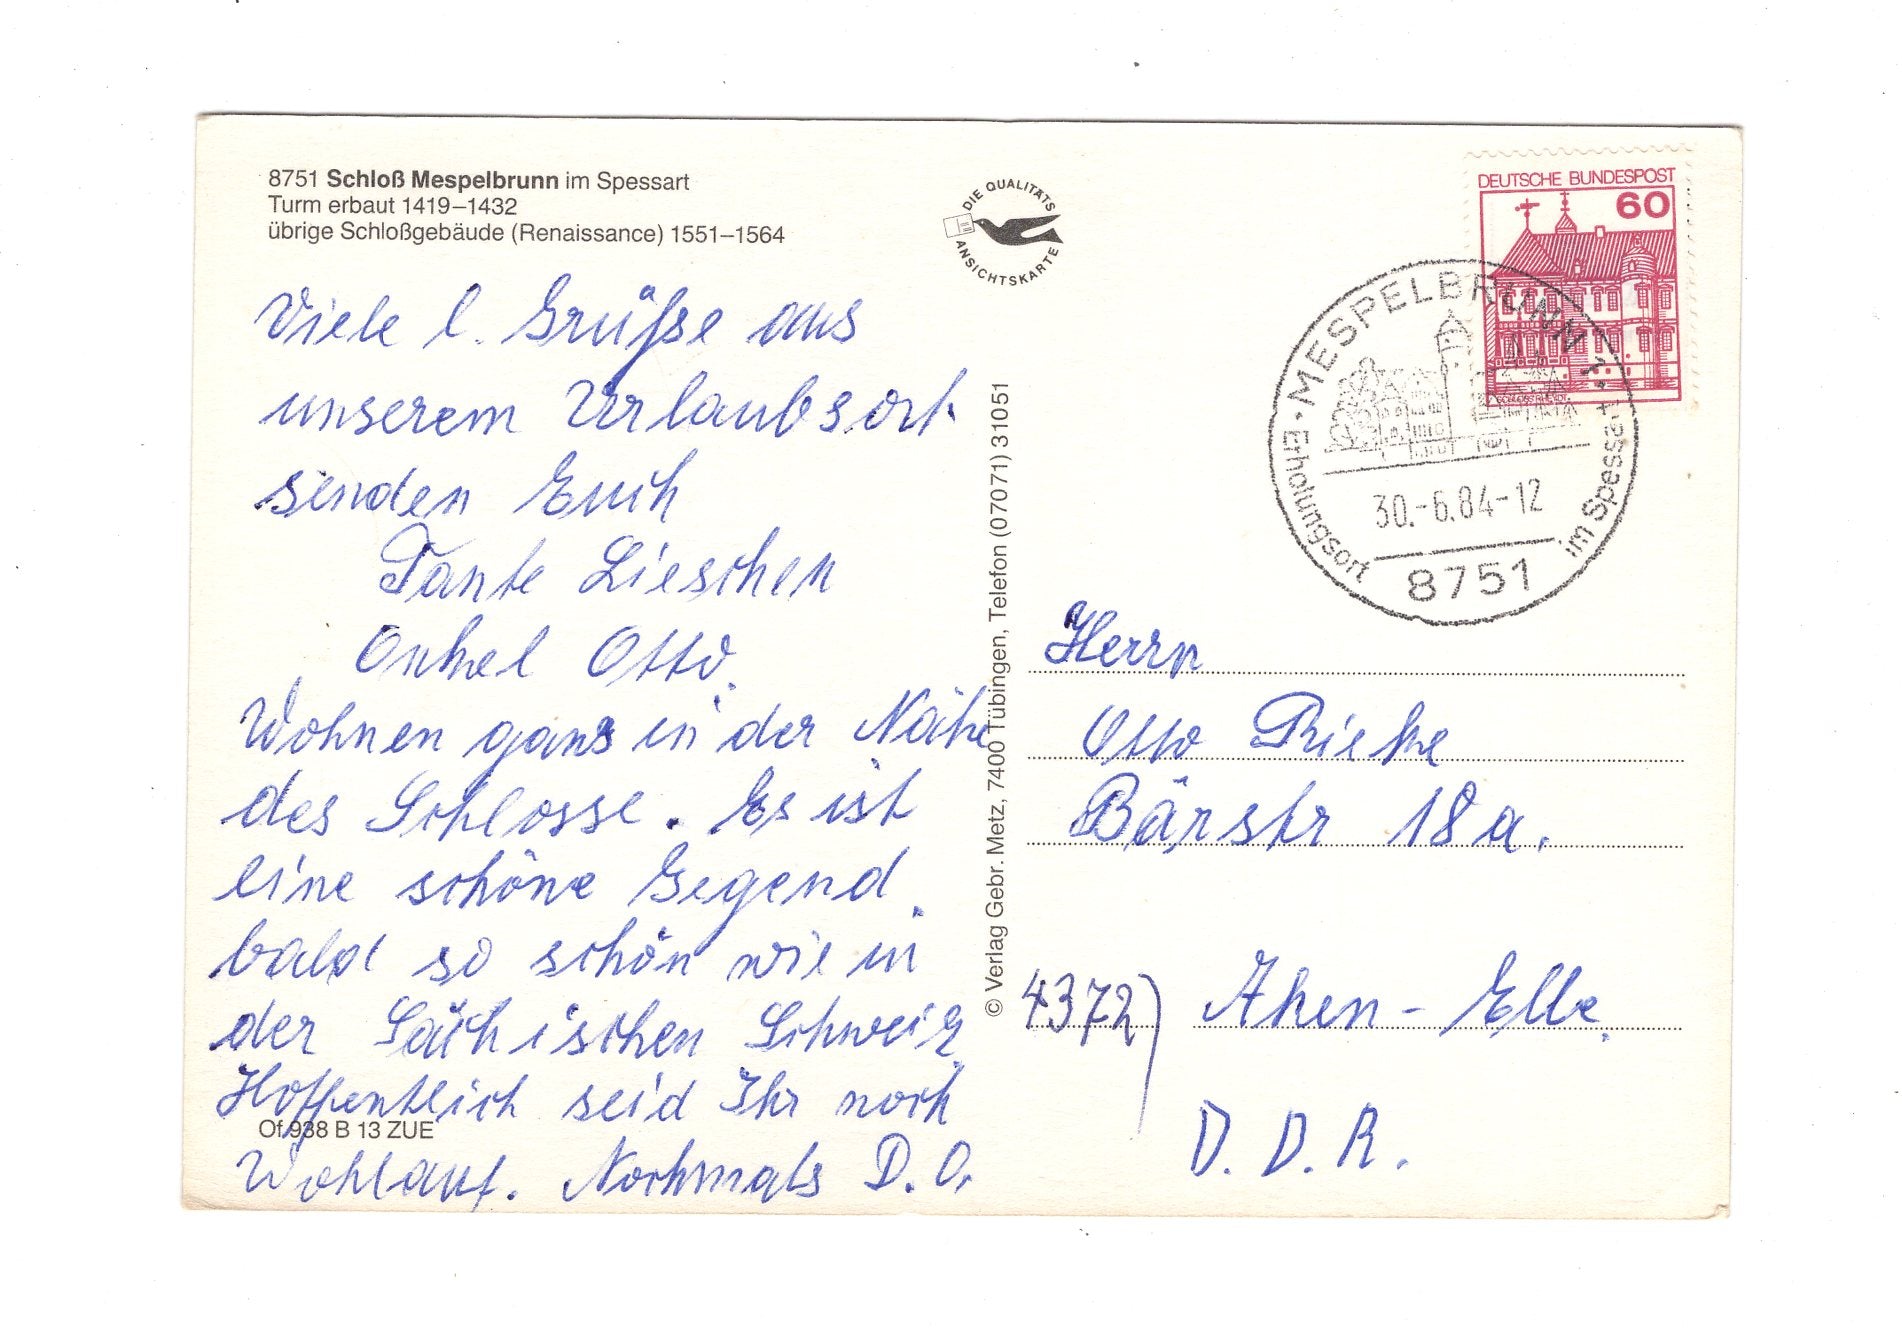 8751 Schloß Mespelbrunn im Spessart
Turm erbaut 1419–1432
übrige Schloßgebäude (Renaissance) 1551–1564
Viele l. Grüße aus
unserem Urlaubsort
senden Euch
Tante Lieschen
Onkel Otto.
Wohnen ganz in der Nähe
des Schlosse. Es ist
eine schöne Gegend.
bald so schön wie in
der Sächischen Schweiz.
Hoffentlich seid Ihr noch
Of 938 B 13 ZUE
Wohlauf. Nochmals D. O.
DIE QUALITÄTS
ANSICHTSKARTE
© Verlag Gebr. Metz, 7400 Tübingen, Telefon (07071) 31051
DEUTSCHE BUNDESPOST
60
MESPELBRUNN 1
Erholungsort im Spessart
30.-6.84-12
8751
Herrn
Otto Rieke
Bärstr 18 a.
4372) Aken - Elbe.
D. D. R.